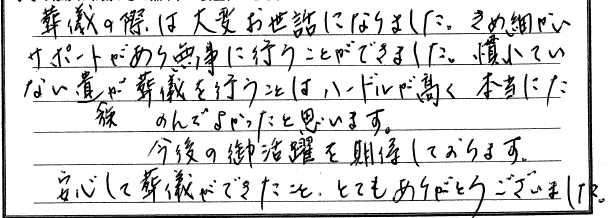 葬儀の際は大変お世話になりました。きめ細かい
サポートがあり無事に行うことができました。慣れてい
ない遺族が葬儀を行うことはハードルが高く本当にた
のんでよかったと思います。
今後の御活躍を期待しております。
安心して葬儀ができたこと、とてもありがとうございました。